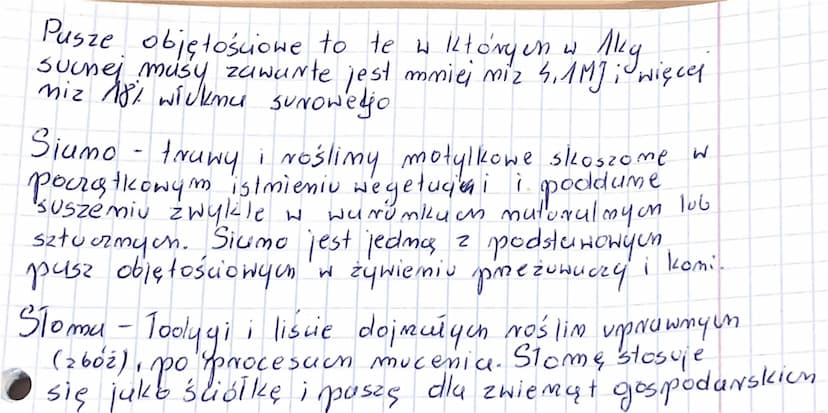 Pasze objętościowe to te w których w 1kg
suchej masy zawarte jest mniej niż 4,1MJ i więcej
niż 18% włókna surowego
Siano - trawy i rośliny motylkowe skoszone w
początkowym istnieniu wegetacji i poddane
suszeniu zwykle w warunkach naturalnych lub
sztucznych. Siano jest jedną z podstawowych
pasz objętościowych w żywieniu przeżuwaczy i koni.
Słoma - łodygi i liście dojrzałych roślin uprawnych
(zbóż), po procesach młócenia. Słomę stosuje
się jako ściółkę i paszę dla zwierząt gospodarskich